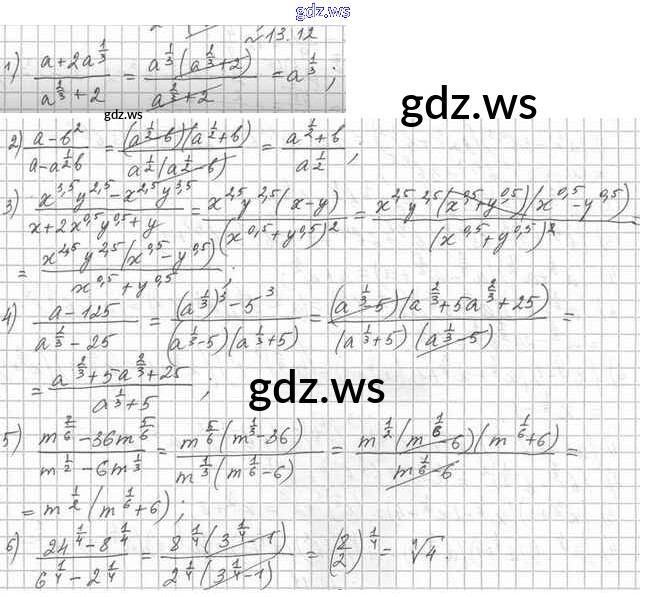 gdz.ws
№13.12
1) \frac{a+2a^{\frac{1}{3}}}{a^{\frac{1}{3}}+2} = \frac{a^{\frac{1}{3}}(a^{\frac{2}{3}}+2)}{a^{\frac{2}{3}}+2} = a^{\frac{1}{3}};
gdz.ws
gdz.ws
2) \frac{a-b^2}{a-a^{\frac{1}{2}}b} = \frac{(a^{\frac{1}{2}}-b)(a^{\frac{1}{2}}+b)}{a^{\frac{1}{2}}(a^{\frac{1}{2}}-b)} = \frac{a^{\frac{1}{2}}+b}{a^{\frac{1}{2}}};
3) \frac{x^{3,5}y^{2,5}-x^{2,5}y^{3,5}}{x+2x^{0,5}y^{0,5}+y} = \frac{x^{2,5}y^{2,5}(x-y)}{(x^{0,5}+y^{0,5})^2} = \frac{x^{2,5}y^{2,5}(x^{0,5}+y^{0,5})(x^{0,5}-y^{0,5})}{(x^{0,5}+y^{0,5})^2} =
= \frac{x^{2,5}y^{2,5}(x^{0,5}-y^{0,5})}{x^{0,5}+y^{0,5}};
4) \frac{a-125}{a^{\frac{2}{3}}-25} = \frac{(a^{\frac{1}{3}})^3-5^3}{(a^{\frac{1}{3}}-5)(a^{\frac{1}{3}}+5)} = \frac{(a^{\frac{1}{3}}-5)(a^{\frac{2}{3}}+5a^{\frac{2}{3}}+25)}{(a^{\frac{1}{3}}+5)(a^{\frac{1}{3}}-5)} =
= \frac{a^{\frac{2}{3}}+5a^{\frac{2}{3}}+25}{a^{\frac{1}{3}}+5};
gdz.ws
5) \frac{m^{\frac{7}{6}}-36m^{\frac{5}{6}}}{m^{\frac{1}{2}}-6m^{\frac{1}{3}}} = \frac{m^{\frac{5}{6}}(m^{\frac{1}{3}}-36)}{m^{\frac{1}{3}}(m^{\frac{1}{6}}-6)} = \frac{m^{\frac{1}{2}}(m^{\frac{1}{6}}-6)(m^{\frac{1}{6}}+6)}{m^{\frac{1}{6}}-6} =
= m^{\frac{1}{2}}(m^{\frac{1}{6}}+6);
6) \frac{24^{\frac{1}{4}}-8^{\frac{1}{4}}}{6^{\frac{1}{4}}-2^{\frac{1}{4}}} = \frac{8^{\frac{1}{4}}(3^{\frac{1}{4}}-1)}{2^{\frac{1}{4}}(3^{\frac{1}{4}}-1)} = (\frac{8}{2})^{\frac{1}{4}} = \sqrt[4]{4}.
gdz.ws